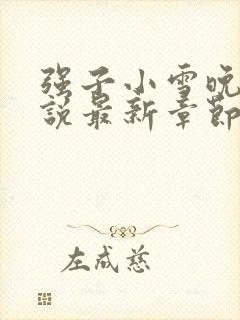 强子小雪晚
說最新章節
左成慈